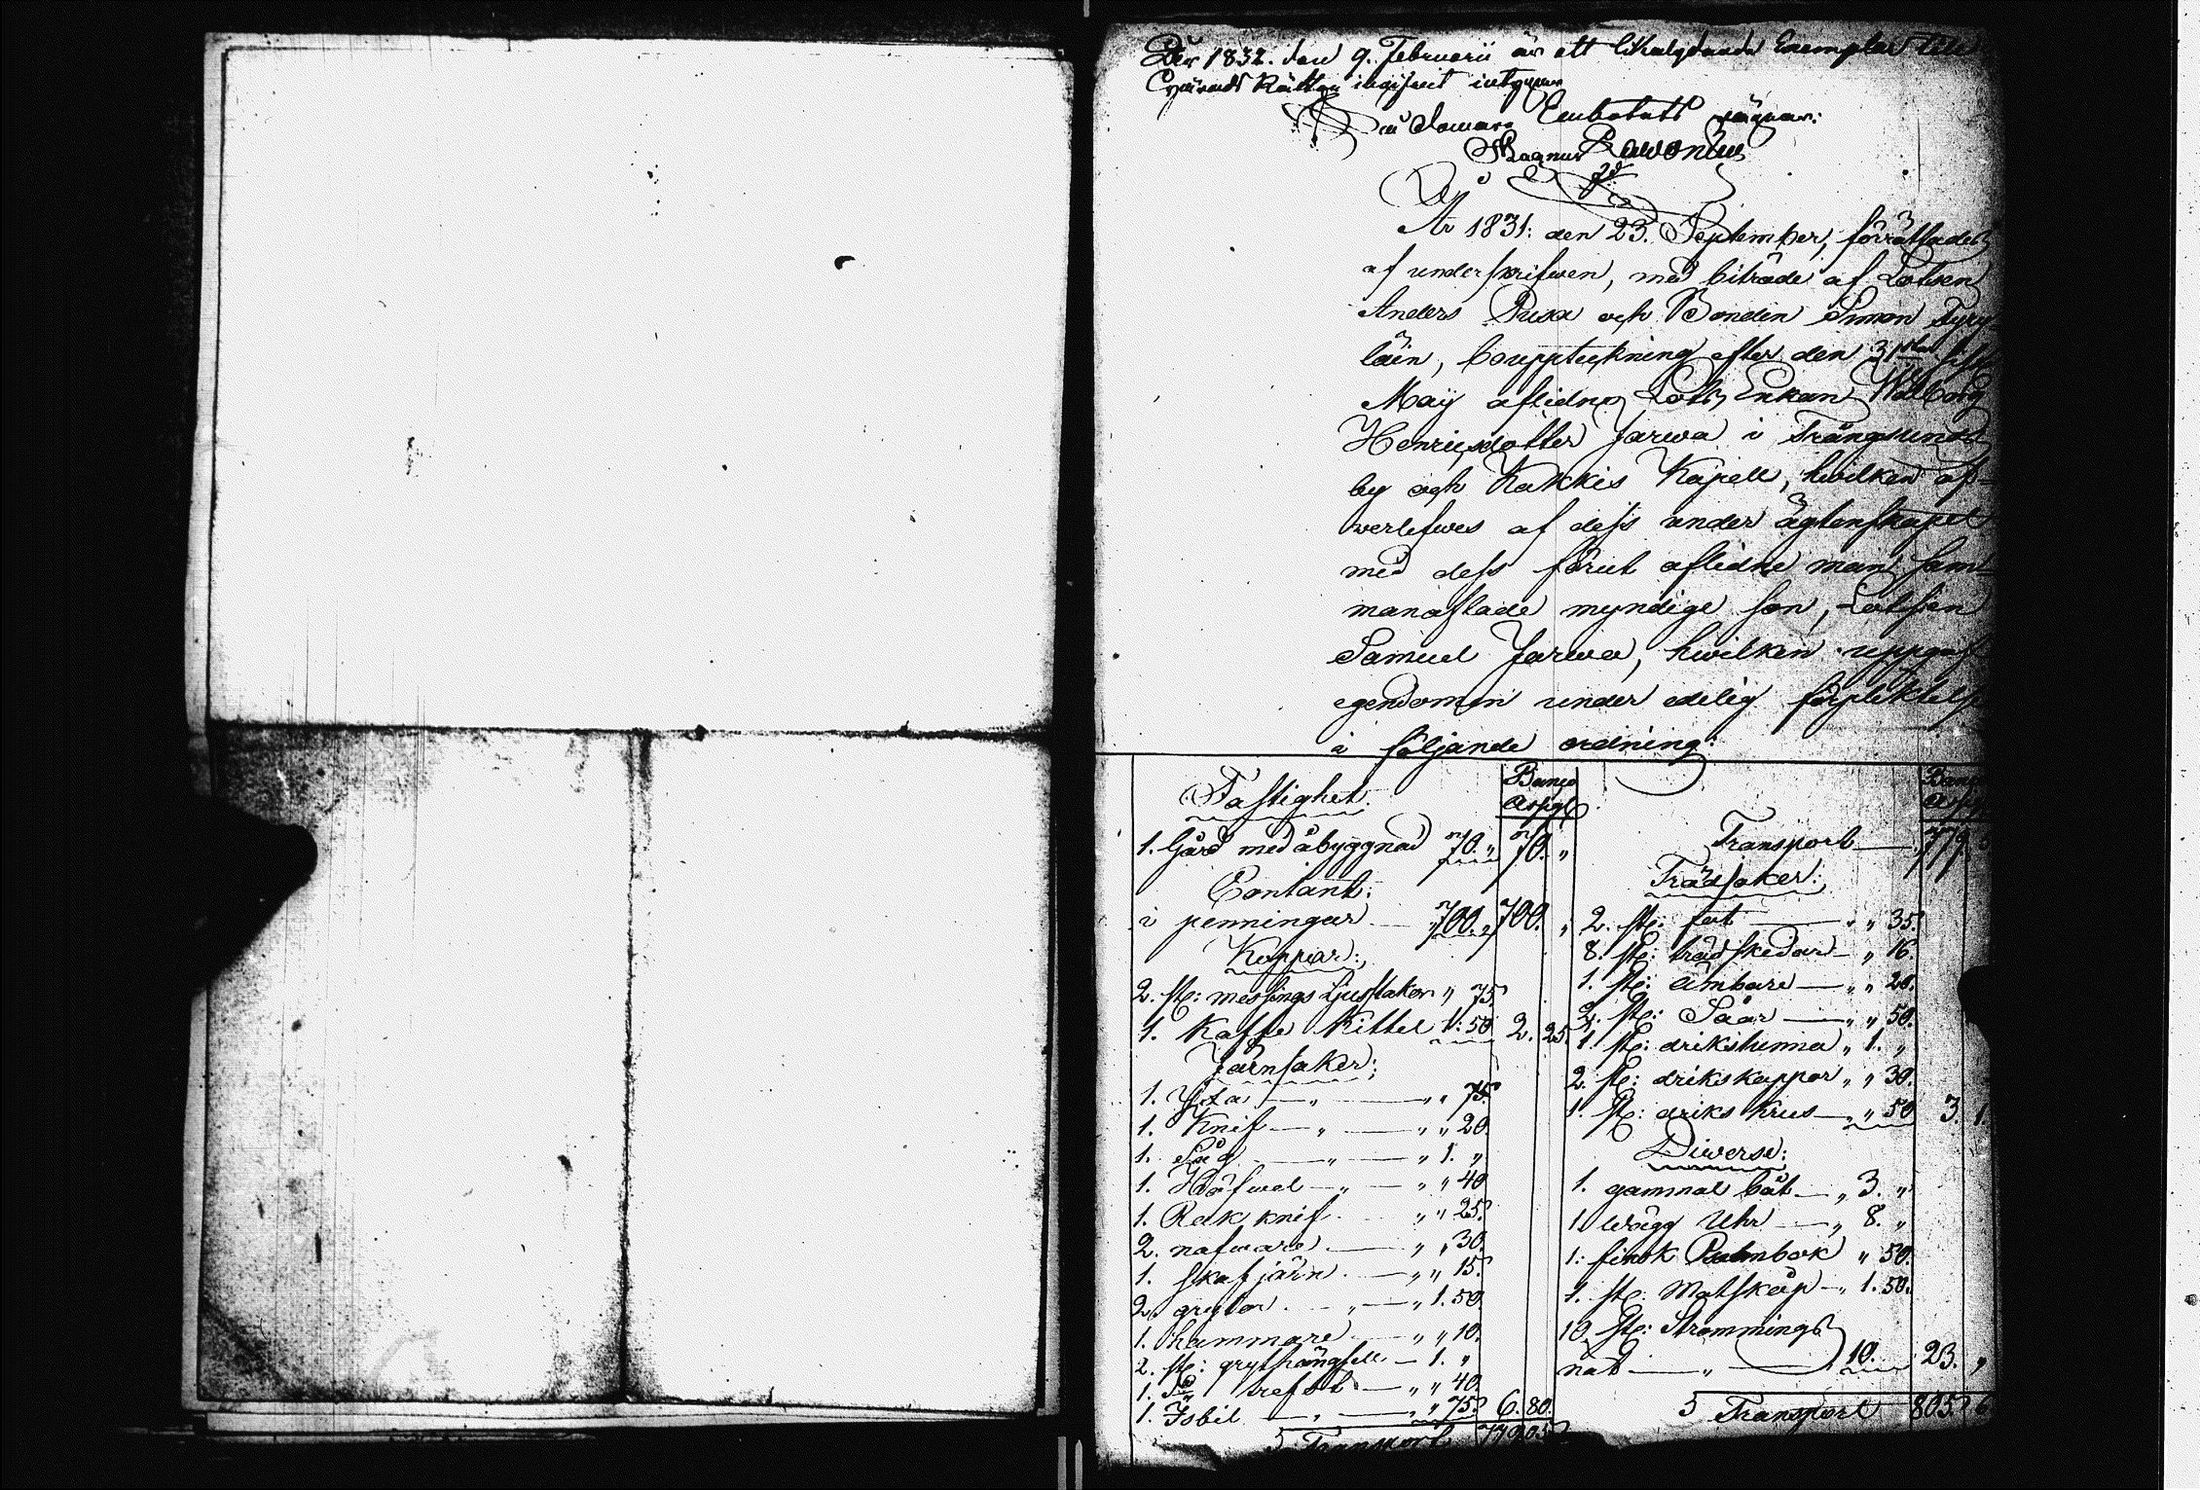 År 1832. den 9. Februarii är ett likalydande Exemplar
Rätten ingifvit intygar
Embetets vägnar:
Magnus
År 1831: den 23. September, förrättades
af underskrifwen, med biträde af Lotsen
Anders Pusa och Bonden Simon Tyry-
läin, bouppteckning efter den 31sta
Maij aflidna Lots Enkan Walborg
Henricsdotter Jarwa i Trångsunds
by och Kakkis Kapell, hwilken öf-
werlefwes af dess under ägtenskapet
med dess förut aflidne man sam-
manaflade myndige son, Lotsen
Samuel Jarwa, hwilken uppgaf
egendomen under edelig förpliktelse
i följande ordning:
Fastighet.
Banco
Assign
1. Gård med åbyggnad 70. " 70. "
Contant:
i penningar — 700. " 700. "
Koppar:
2. st: messings Ljusstakar " 75.
1. Kaffe Kittel 1: 50 2. 25.
Järnsaker:
1. Yxa — " — " " 75.
1. Knif — " — " " 20.
1. Såg — " — " 1. "
1. Höfwel — " — " " 40
1. Rak knif — " " 25.
2. nafware — " " 30.
1. skafjärn — " " 15.
2. grytor — " — " 1. 50.
1. hammare — " " 10.
2. st: grythängsell — 1. "
1. St trefot — " " 40.
1. Isbil — " — " " 75. 6. 80.
Transport 779. 05.
Transport — 779.
Trädsaker:
2. st: fat — " " 35.
8. st: trädskedar — " 16.
1. st: ämbare — " " 20.
2. st: Såar — " " 50.
1. st: drikstunna " 1. "
2. st: drikskappor " " 30.
1. st: driks krus — " " 50 3. 1.
Diverse:
1. gammal båt — " 3. "
1. wägg Uhr — " 8. "
1: finsk Psalmbok " 50.
1. st: Matskåp — " 1. 50.
10 st: Strömmings
nät — " — 10. 23. "
Transport 805. 6